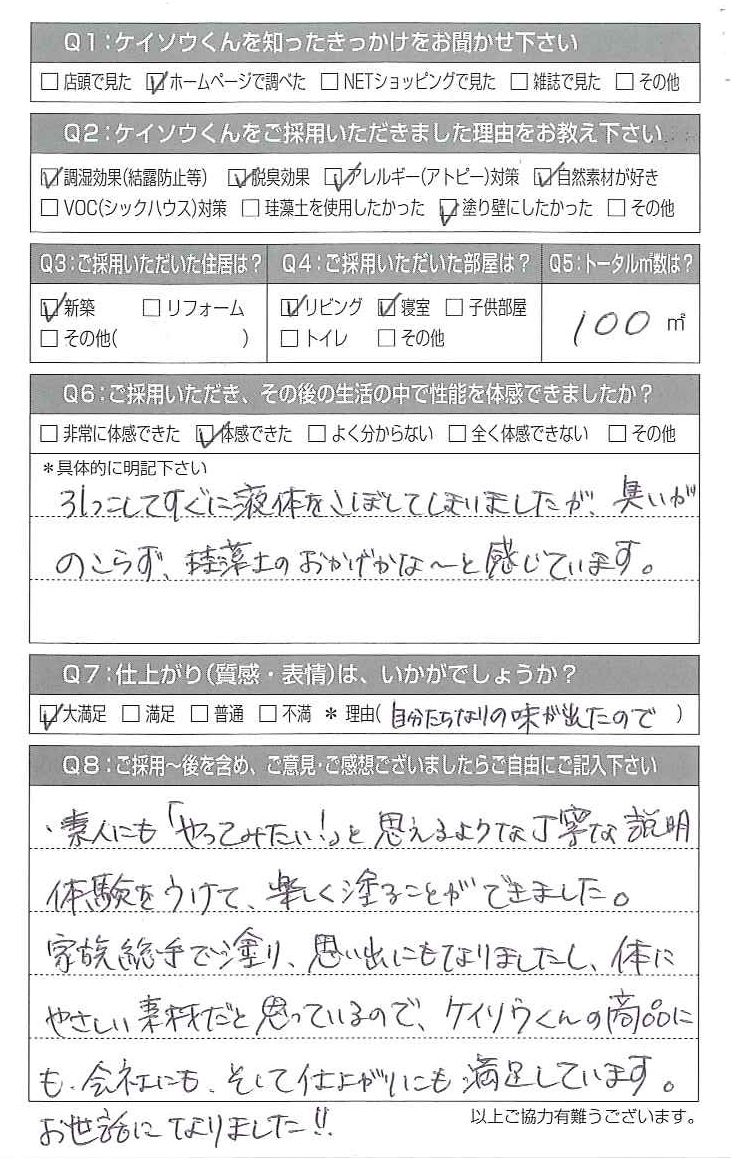 Q1:ケイソウくんを知ったきっかけをお聞かせ下さい
□店頭で見た ☑ホームページで調べた □NETショッピングで見た □雑誌で見た □その他
Q2:ケイソウくんをご採用いただきました理由をお教え下さい
☑調湿効果(結露防止等) ☑脱臭効果 ☑アレルギー(アトピー)対策 ☑自然素材が好き
□VOC(シックハウス)対策 □珪藻土を使用したかった ☑塗り壁にしたかった □その他
Q3:ご採用いただいた住居は? Q4:ご採用いただいた部屋は? Q5:トータル㎡数は?
☑新築 □リフォーム ☑リビング ☑寝室 □子供部屋 100㎡
□その他( ) □トイレ □その他
Q6:ご採用いただき、その後の生活の中で性能を体感できましたか?
□非常に体感できた ☑体感できた □よく分からない □全く体感できない □その他
*具体的に明記下さい
引っこしてすぐに液体をこぼしてしまいましたが、臭いが
のこらず、珪藻土のおかげかな〜と感じています。
Q7:仕上がり(質感・表情)は、いかがでしょうか?
☑大満足 □満足 □普通 □不満 *理由(自分たちなりの味が出たので)
Q8:ご採用〜後を含め、ご意見・ご感想ございましたらご自由にご記入下さい
・素人にも「やってみたい!」と思えるような丁寧な説明
体験をうけて、楽しく塗ることができました。
家族総手で塗り、思い出にもなりましたし、体に
やさしい素材だと思っているので、ケイソウくんの商品に
も、会社にも、そして仕上がりにも満足しています。
お世話になりました!!
以上ご協力有難うございます。